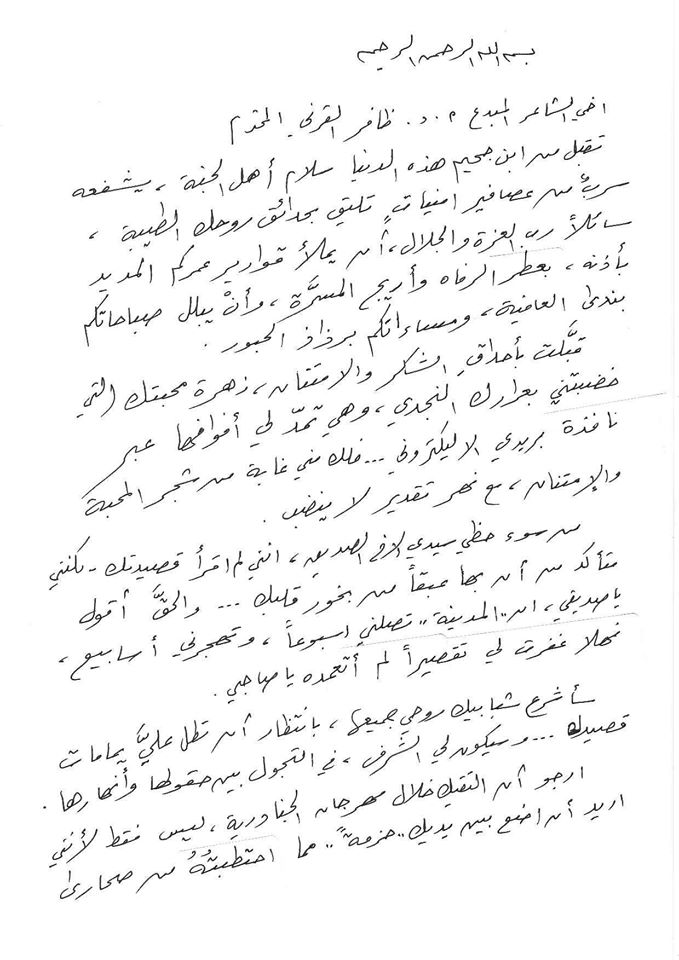 بسم الله الرحمن الرحيم
اخي الشاعر المبدع م. د. ظافر القرني المحترم
تقبل من ابن جحيم هذه الدنيا سلام أهل الجنة ، يشفعه
سربٌ من عصافير امنيات تليق بحدائق روحك الطيبة ،
سائلاً رب العزة والجلال ، أن يملأ قوارير عمركم المديد
بأذنه ، بعطر الرفاه وأريج المسرَّة ، وأنْ يبلل صباحاتكم
بندى العافية ، ومساءاتكم برذاذ الحبور .
قبَّلت بأحداقِ الشكر والامتنان ، زهرة محبتك (التي
خضبتني بعرارك النجدي ، وهي تمدّ لي أفوافها عبر
نافذة بريدي الاليكتروني ... فلك مني غابة من شجر المحبة
والإمتنان ، مع نهر تقدير لا ينضب .
من سوء حظي سيدي الاخ الصديق ، انني لم اقرأ قصيدتك - لكنني
متأكد من أن بها عبقاً من بخور قلبك ... والحقَّ أقول
يا صديقي ، ان ,,المدينة,, تصلني اسبوعاً ، وتهجرني أسابيع ،
فهلا غفرت لي تقصيراً لم أتعمده يا صاحبي .
سأشرع شبابيك روحي جميعها ، بانتظار أن تطل عليَّ يمامات
قصيدك ... وسيكون لي الشرف ، في التجول بين حقولها وأنهارها .
ارجو أن التقيك خلال مهرجان الجنادرية ، ليس فقط لأنني
اريد أن اضع بين يديك ,,حزمة,, مما احتطبتُهُ من صحارى